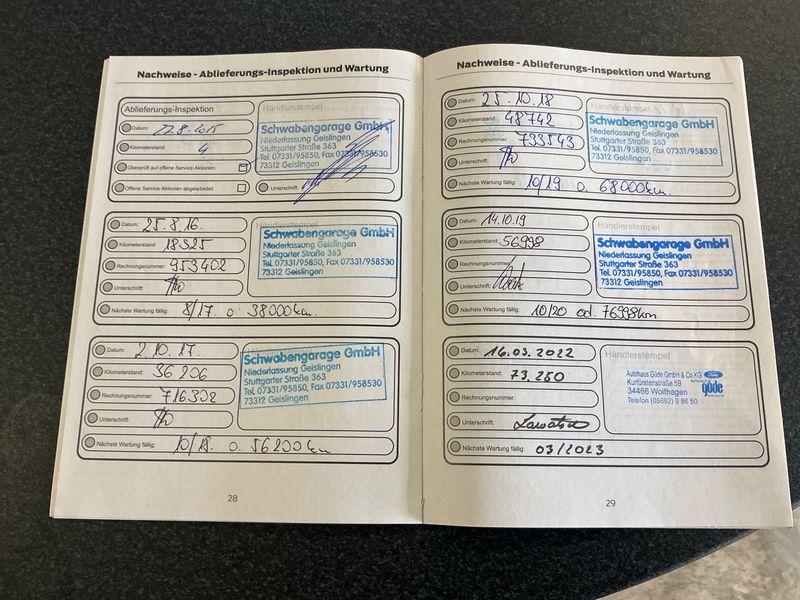 Nachweise - Ablieferungs-Inspektion und Wartung
Ablieferungs-Inspektion
Datum: 22.8.2015
Kilometerstand: 4
Überprüft auf offene Service Aktionen:
Offene Service Aktionen abgearbeitet:
Händlerstempel
Schwabengarage GmbH
Niederlassung Geislingen
Stuttgarter Straße 363
Tel. 07331/95850, Fax 07331/958530
73312 Geislingen
Unterschrift:
Datum: 25.8.16.
Kilometerstand: 18325
Rechnungsnummer: 953402
Unterschrift:
Nächste Wartung fällig: 8/17 o. 38000km.
Händlerstempel
Schwabengarage GmbH
Niederlassung Geislingen
Stuttgarter Straße 363
Tel. 07331/95850, Fax 07331/958530
73312 Geislingen
Datum: 2.10.17.
Kilometerstand: 36206
Rechnungsnummer: 716302
Unterschrift:
Nächste Wartung fällig: 10/18. o. 56200km
Schwabengarage GmbH
Niederlassung Geislingen
Stuttgarter Straße 363
Tel. 07331/95850, Fax 07331/958530
73312 Geislingen
28
Nachweise - Ablieferungs-Inspektion und Wartung
Datum: 25.10.18
Kilometerstand: 48742
Rechnungsnummer: 733543
Unterschrift:
Nächste Wartung fällig: 10/19 o. 68000km.
Händlerstempel
Schwabengarage GmbH
Niederlassung Geislingen
Stuttgarter Straße 363
Tel. 07331/95850, Fax 07331/958530
73312 Geislingen
Datum: 14.10.19
Kilometerstand: 56998
Rechnungsnummer:
Unterschrift:
Nächste Wartung fällig: 10/20 od. 76998km
Händlerstempel
Schwabengarage GmbH
Niederlassung Geislingen
Stuttgarter Straße 363
Tel. 07331/95850, Fax 07331/958530
73312 Geislingen
Datum: 16.03.2022
Kilometerstand: 73.250
Rechnungsnummer:
Unterschrift:
Nächste Wartung fällig: 03/2023
Händlerstempel
Autohaus Güde GmbH & Co.KG
Kurfürstenstraße 59
34466 Wolfhagen
Telefon (05692) 9 86 50
Ford
güde
29